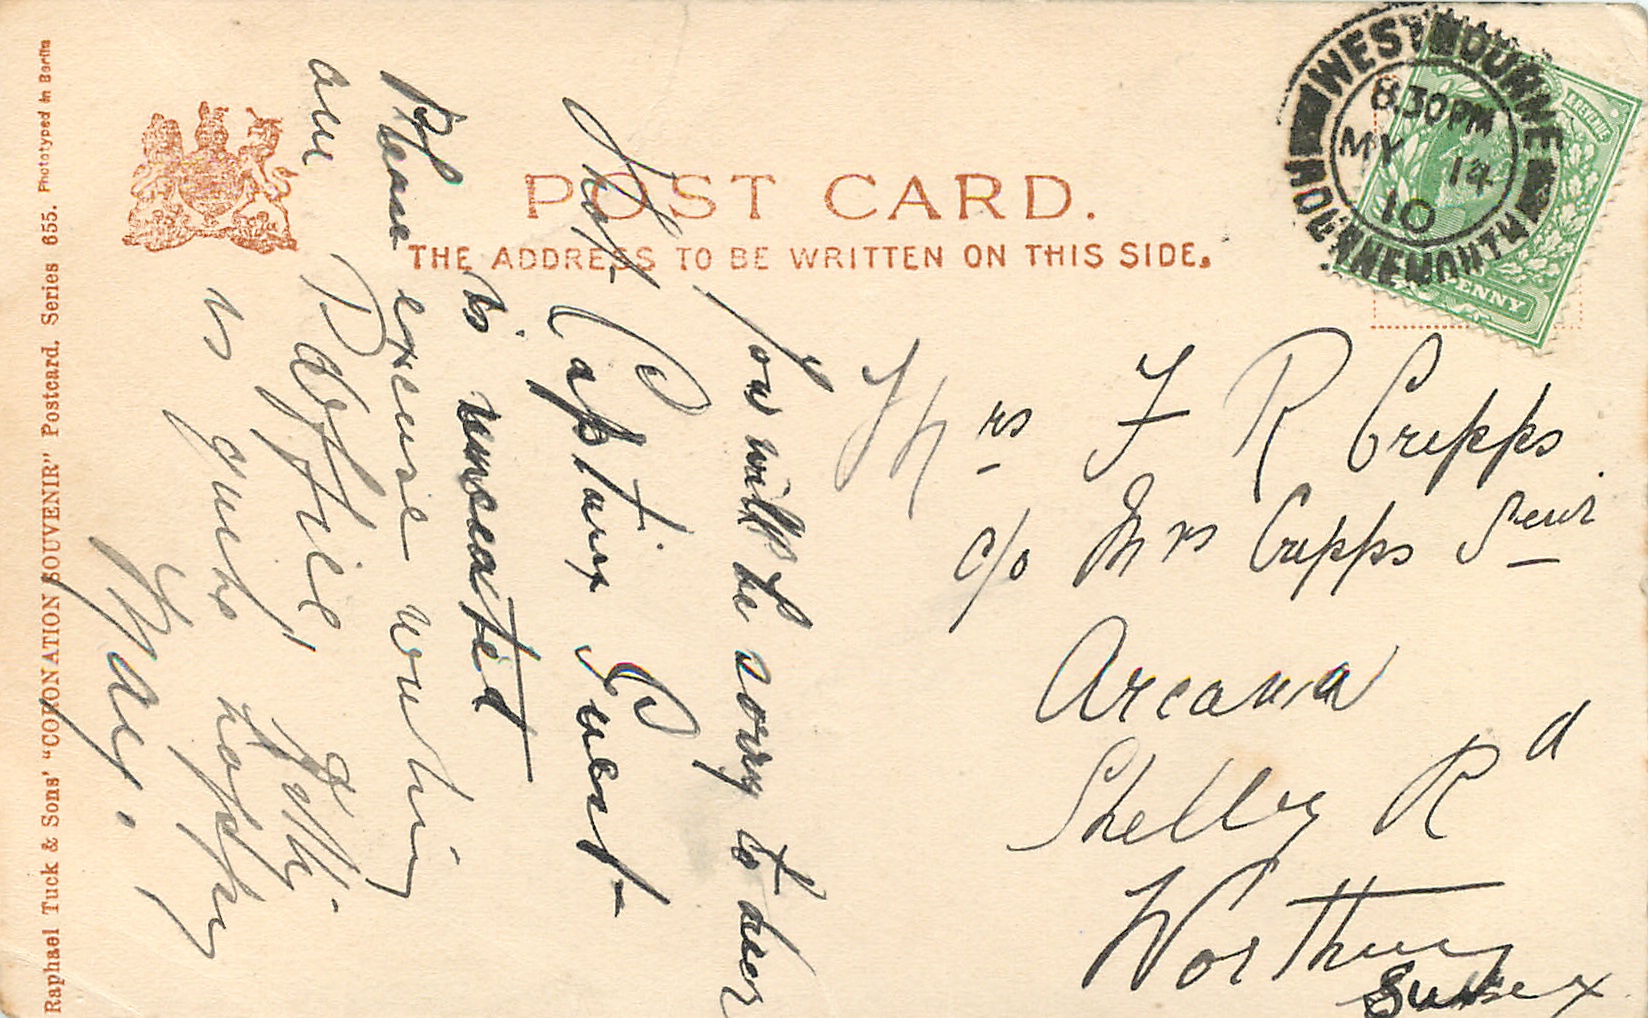 POST CARD.
THE ADDRESS TO BE WRITTEN ON THIS SIDE.
WEST BOURNE
8.30PM
MY 14
10
BOURNEMOUTH
& REVENUE
PENNY
Mrs F R Cripps
c/o Mrs Cripps Senr
Arcana
Shelley Rd
Worthing
Sussex
You will be sorry to hear
that Captain Guest
is
Please excuse writing
am
is quite happy
May.
Raphael Tuck & Sons' "CORONATION SOUVENIR" Postcard. Series 655. Phototyped in Berlin